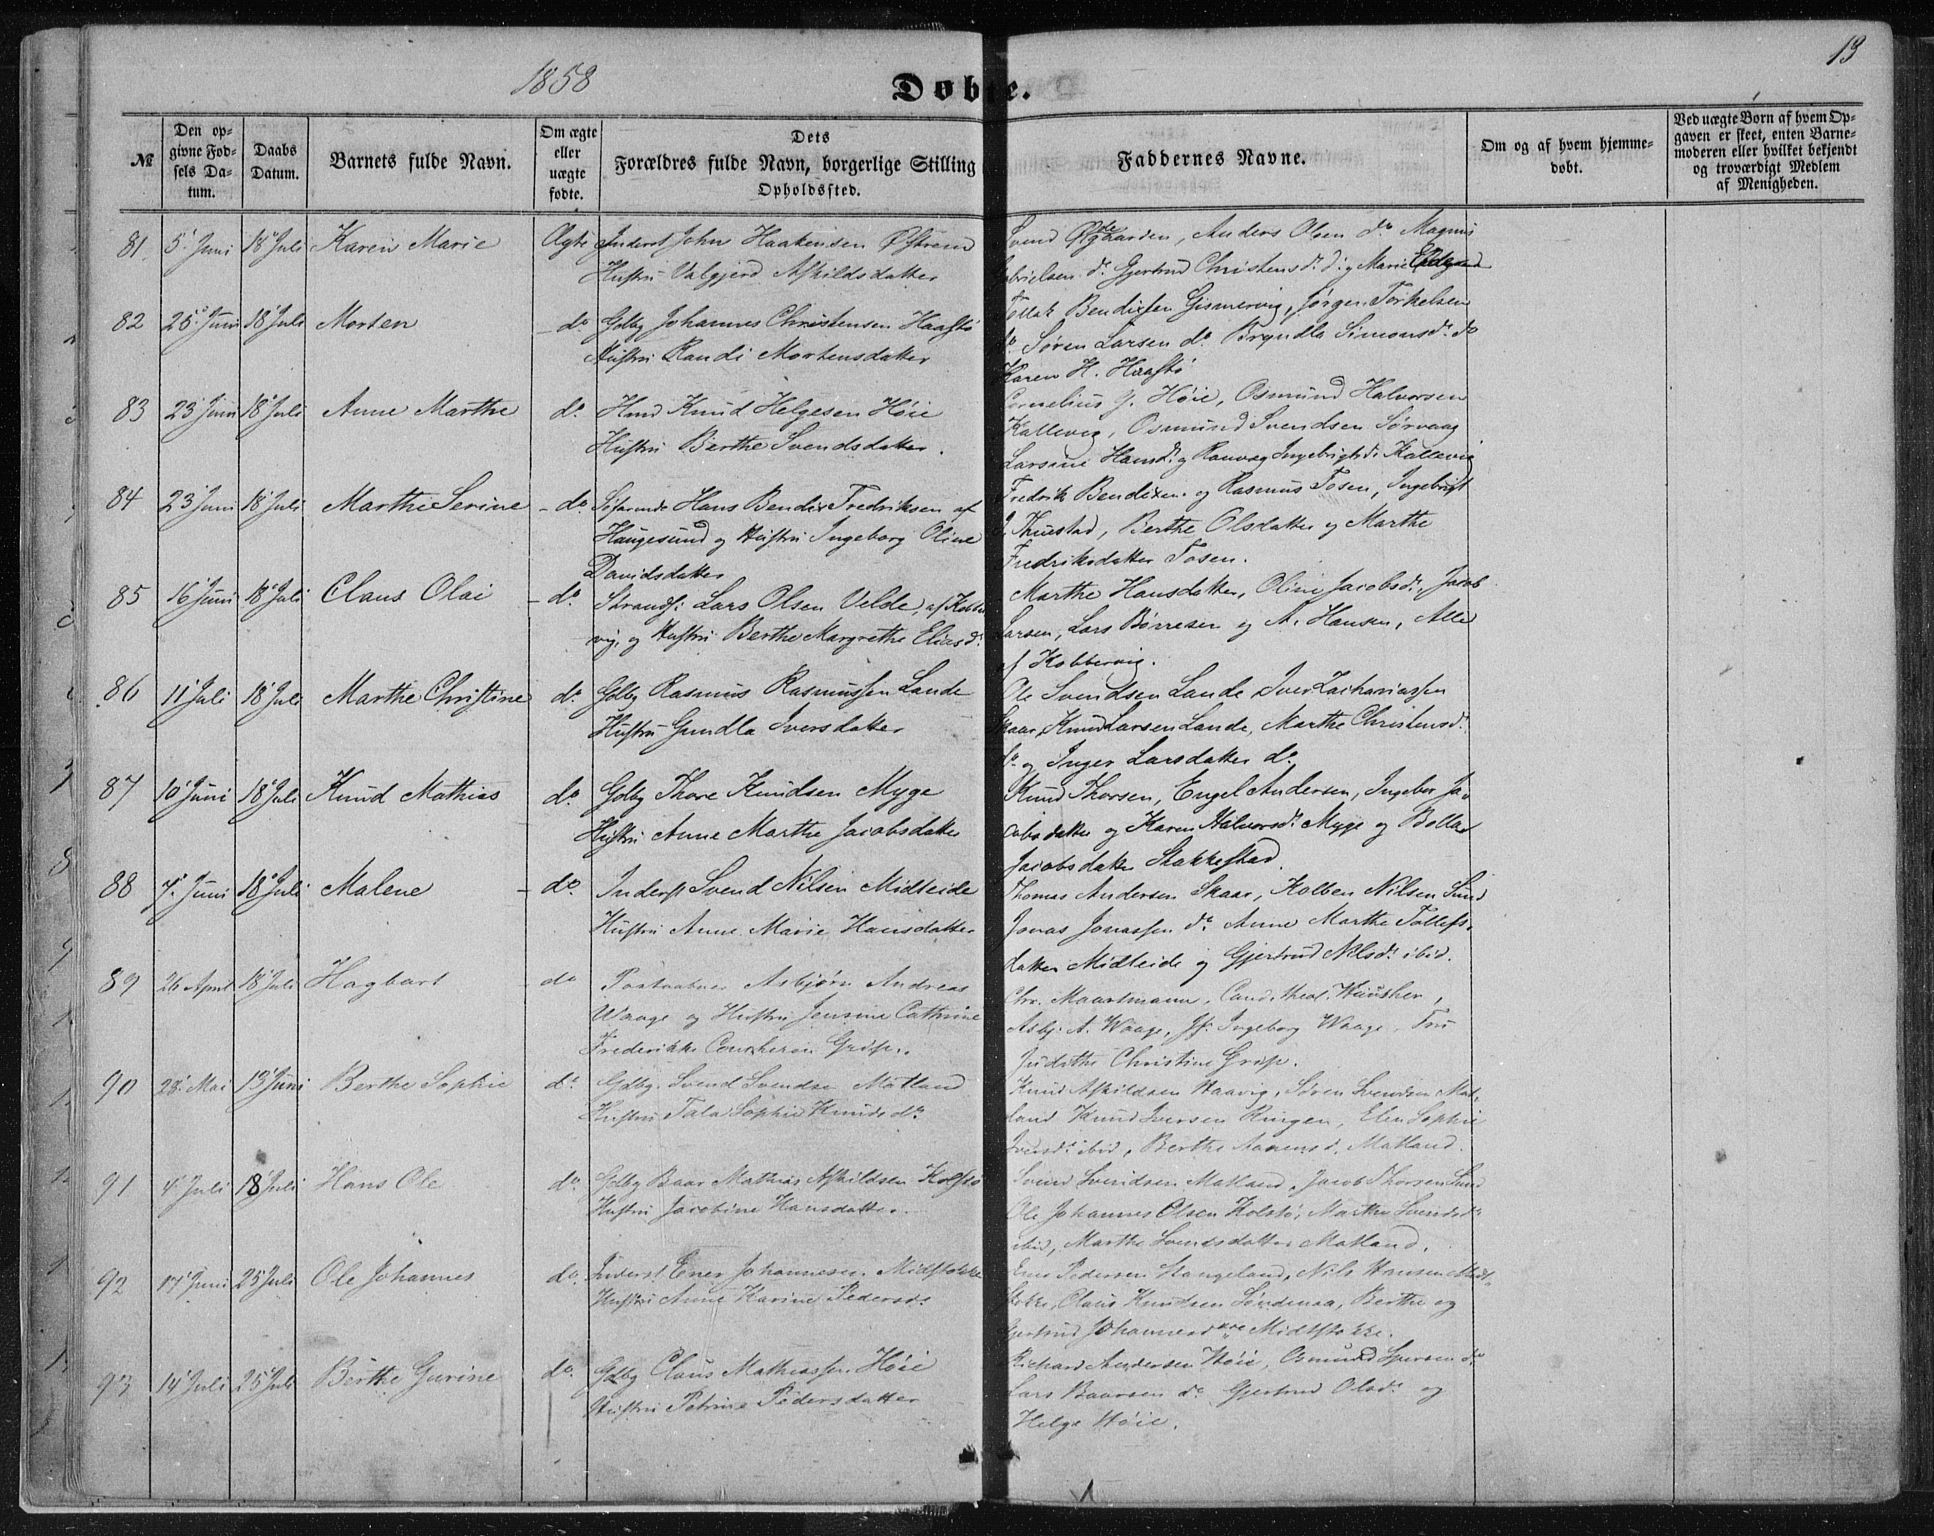 1858
Døbte.
13
№
Den opgivne Fødsels Datum.
Daabs Datum.
Barnets fulde Navn.
Om ægte eller uægte fødte.
Dets Forældres fulde Navn, borgerlige Stilling Opholdssted.
Faddernes Navne.
Om og af hvem hjemmedøbt.
Ved uægte Børn af hvem Opgaven er skeet, enten Barnemoderen eller hvilket bekjendt og troværdigt Medlem af Menigheden.
81. 5 Juni 18 Juli Karen Marie Ægte Inderst John Haakensen Østrem
Hustru Valgjerd Askildsdatter
Svend Øigaarden, Anders Olsen do Magnus
Gabrielsen do Gjertrud Christensd. do og Marie
82 25 Juni 18 Juli Morten do Gdbg Johannes Christensen Haastø
Hustru Randi Mortensdatter
Tollak Bendixsen Gismervig, Jørgen Torkelsen
do Søren Larsen do Bryndla Simonsd. do
Karen H. Haastø
83 23 Juni 18 Juli Anne Marthe do Hmd Knud Helgesen Høie
Hustru Berthe Svendsdatter.
Cornelius J. Høie, Osmund Halvorsen
Kallevig, Osmund Svendsen Sørvaag
Larsine Hansd. og Ranvag Ingebrigtsd. Kallevig
84 23 Juni 18 Juli Marthe Serine do Søfarende Hans Bendix Fredriksen af
Haugesund og Hustru Ingeborg Oline
Davidsdatter
Fredrik Bendixen og Rasmus Tosen, Ingebrigt
Berthe Olsdatter og Marthe
Fredriksdatter Tosen.
85 16 Juni 18 Juli Claus Olai do Strands. Lars Olsen Velde, af Kobber
vig, og Hustru Berthe Margrethe Eliasd.
Marthe Hansdatter, Oline Jacobsd., Jacob
Larsen, Lars Børresen og A. Hansen, Alle
af Kobbervig.
86 11 Juli 18 Juli Marthe Christine do Gdbg Rasmus Rasmussen Lande
Hustru Gundla Iversdatter
Ole Svendsen Lande, Iver Zachariassen
Skaar, Knud Larsen Lande, Marthe Christensd.
do og Inger Larsdatter do
87 10 Juni 18 Juli Knud Mathias do Gdbg Thore Knudsen Myge
Hustru Anne Marthe Jacobsdatter
Knud Thorsen, Engel Andersen, Ingebor Ja-
cobsdatter og Karen Halvorsd. Myge og Bolla
Jacobsdatter Stakkestad.
88 7 Juni 18 Juli Malene do Inderst Svend Nilsen Midteide
Hustru Anne Marie Hansdatter
Thomas Andersen Skaar, Kolben Nilsen Sund
Jonas Jonassen do Anne Marthe Tollefs-
datter Midteide og Gjertrud Nilsd. ibid.
89 26 April 18 Juli Hagbart do Postaabner Asbjørn Andreas
Waage og Hustru Jensine Cathrine
Frederikke Coucheron Grip.
Chr. Maartmann, Cand. theol.
Asbj. A. Waage, Jf. Ingeborg Waage, Fru
Judithe Christine Grip.
90 28 Mai 13 Juni Berthe Sophie do Gdbg. Svend Svendsen Matland
Hustru Tala Sophie Knudsd.
Knud Askildsen Haavig, Søren Svendsen Mat-
land Knud Iversen Ringen, Elen Sophie
Iversd. ibid, Berthe Aanensd. Matland.
91 4 Juli 18 Juli Hans Ole do Gdbg Baar Mathias Askildsen Kolstø
Hustru Jacobine Hansdatter.
Svend Svendsen Matland, Jacob Thorsen Sund
Ole Johannes Olsen Kolstø, Marthe Svendsd.
ibid, Marthe Svendsdatter Matland.
92 17 Juni 25 Juli Ole Johannes do Inderst Ener Johannesen Midtstokke
Hustru Anne Karine Pedersd.
Ener Pedersen Stangeland, Nils Hansen Midt-
stokke, Claus Knudsen Søndenaa, Berthe og
Gjertrud Johannesd. Midtstokke.
93 14 Juli 25 Juli Berthe Gurine do Gdbg Claus Mathiassen Høie
Hustru Petrine Pedersdatter
Richard Andersen Høie, Osmund Iversen do
Lars Baarsen do Gjertrud Olsd. og
Helge Høie.